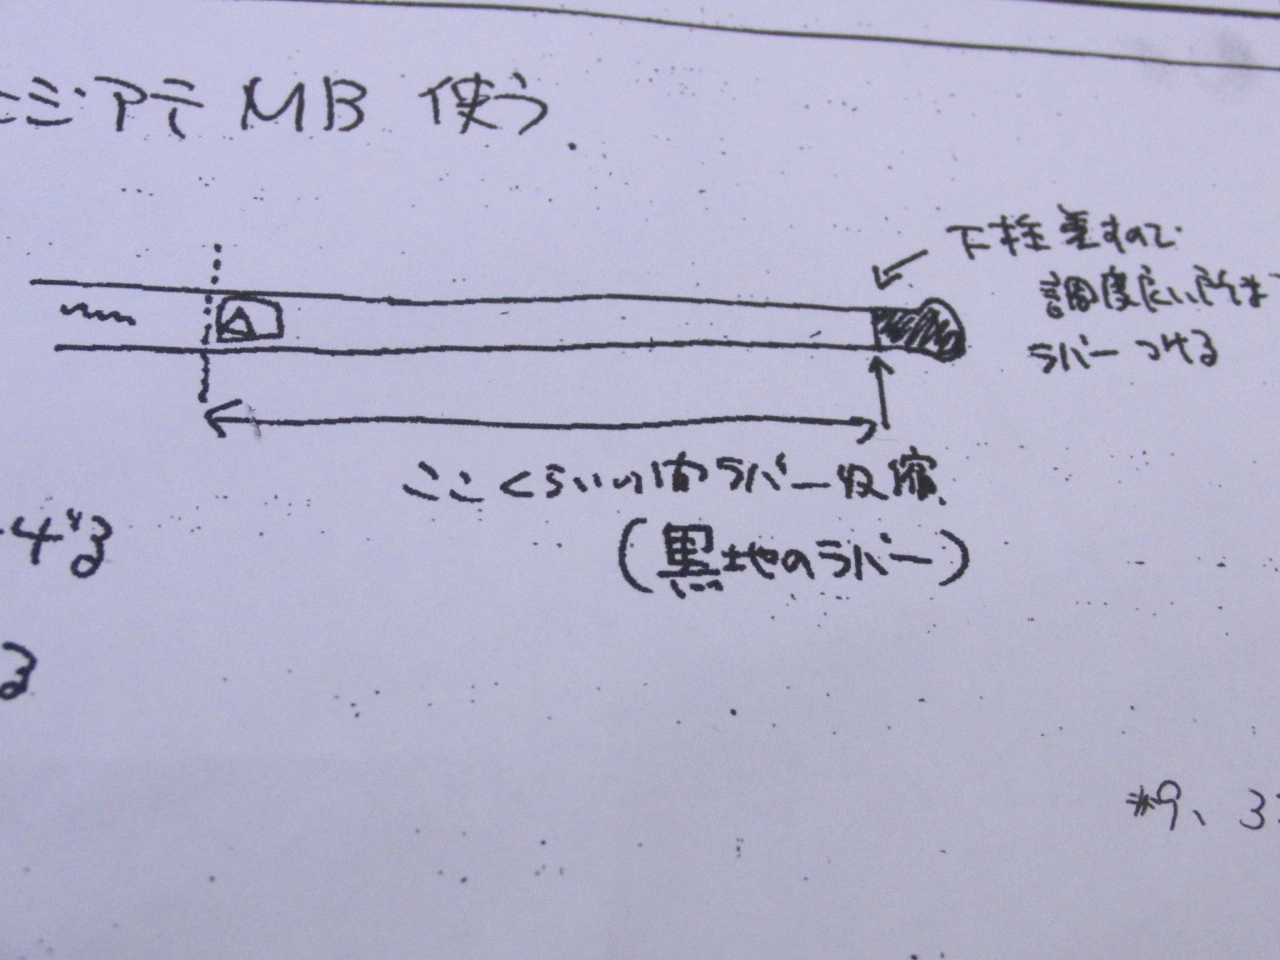 ミジアテ MB 使う.
下栓差すので
調度良い所ま
ラバーつける
ここくらいの間ラバー収縮
(黒地のラバー)
る
*9、3